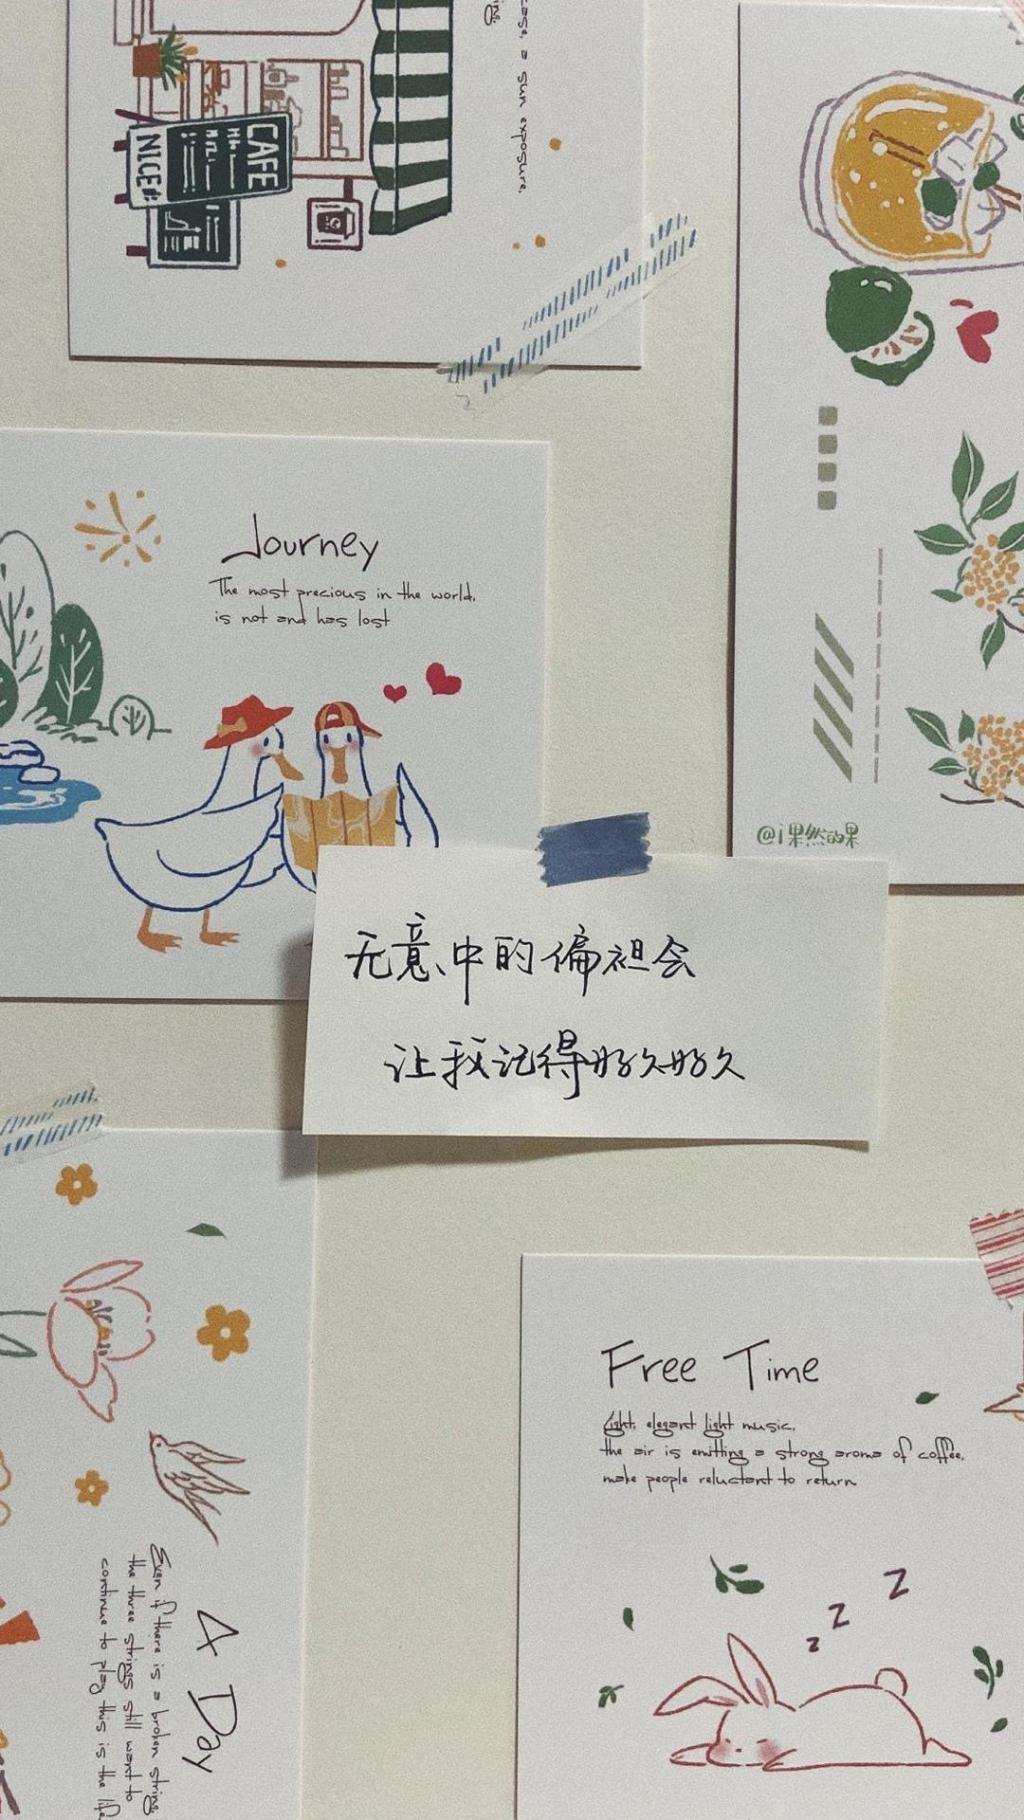 case, a sun exposure.
CAFE
NICE#
Journey
The most precious in the world,
is not and has lost
@i果然的果
无意中的偏袒会
让我记得好久好久
Free Time
Light, elegant light music,
the air is emitting a strong aroma of coffee,
make people reluctant to return
z z z
A Day
Even if there is a broken string
the three strings still want to
continue to play this is the life